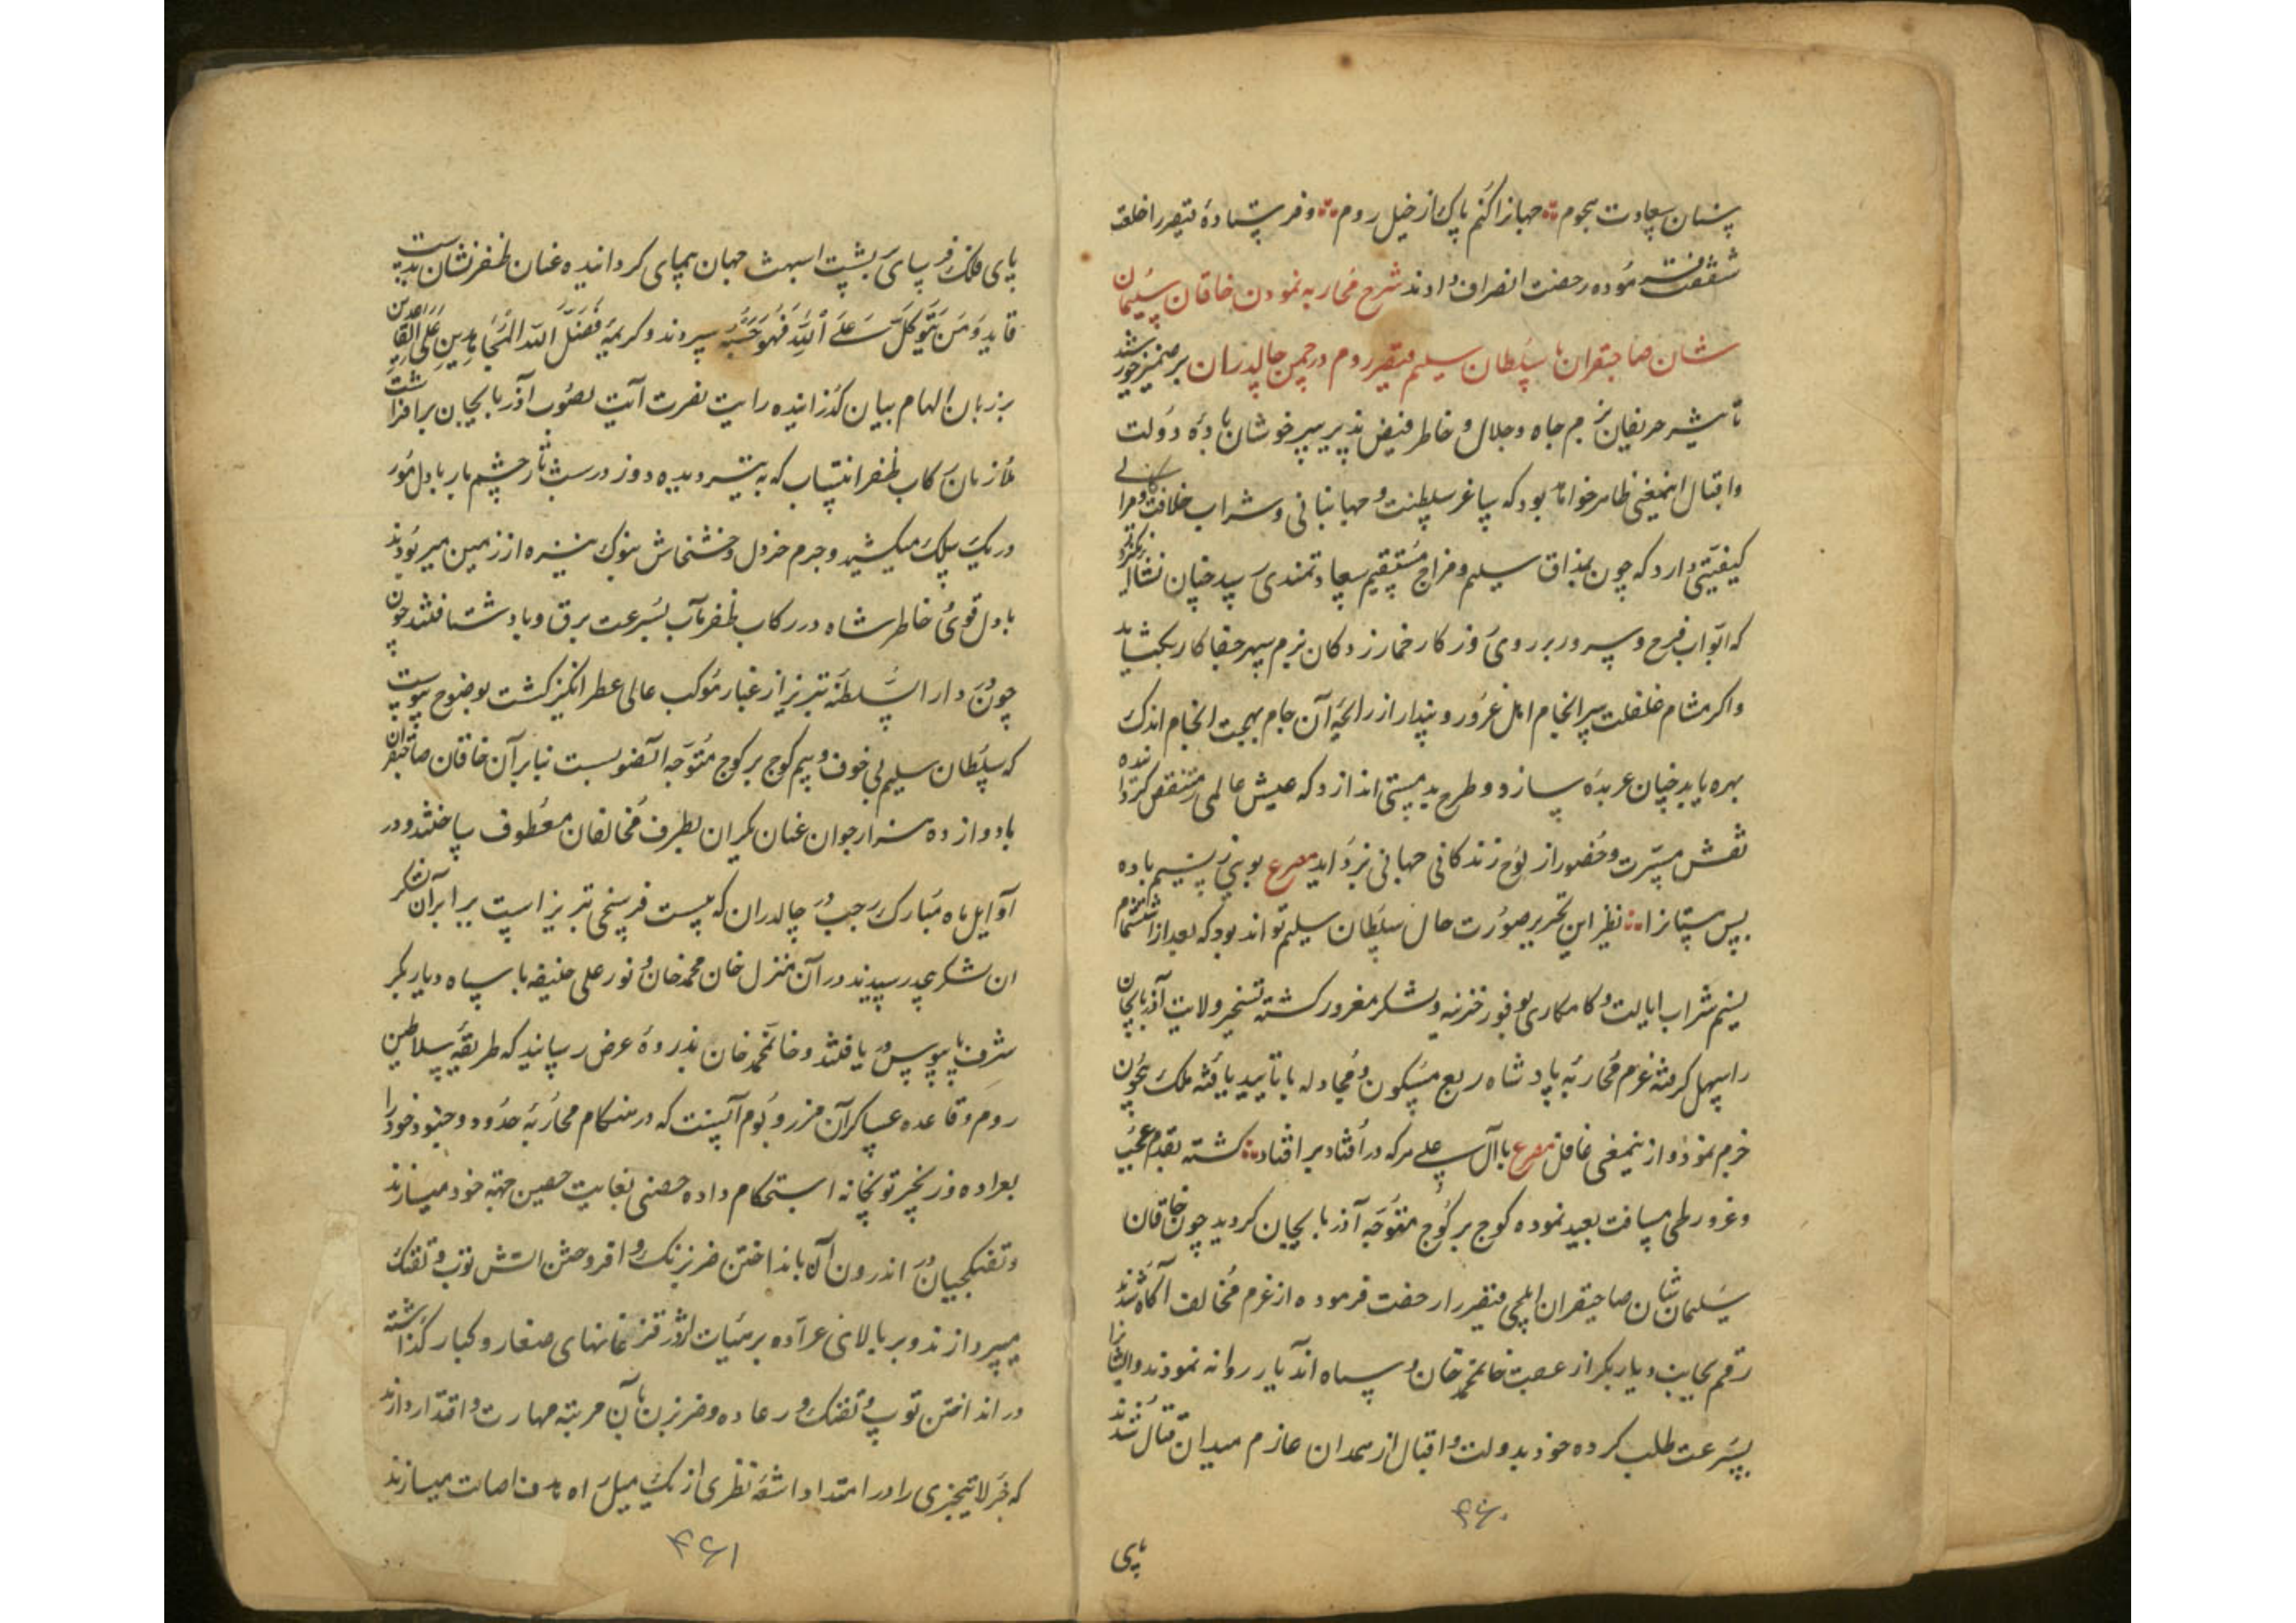 بسنان سعادت هجوم جهانرا کنم پاک از خیل روم و فرستاده قیصر را خلعت
شفقت فرموده رخصت انصراف دادند شرح محاربه نمودن خاقان سلیمان
شان صاحبقران با سلطان سلیم قیصر روم در چمن چالدران بر ضمیر خورشید
تأثیر حریفان بزم جاه و جلال و خاطر فیض پذیر سرخوشان باده دولت
و اقبال اینمعنی ظاهر خواهد بود که ساغر سلطنت و جهانبانی و شراب خلافت و کامرانی
کیفیتی دارد که چون بمذاق سلیم و مزاج مستقیم سعادتمندی رسد چنان نشأ
که ابواب فرح و سرور بر روی روزکار خمار زدکان بزم سپهر جفا کار بکشاید
و اکر مشام غفلت سرانجام اهل غرور و پندار از رایحه آن جام بهجت انجام اندک
بهره یابد چنان عربده سازد و طرح بدمستی اندازد که عیش عالمی را منغص کرداند
نقش مسرت و حضور از لوح زندکانی جهانی بزداید مصرع بویی ز نسیم باده
بس مستانرا نظیر این تحریر صورت حال سلطان سلیم تواند بود که بعد از استشمام
نسیم شراب ایالت و کامکاری بوفور خزینه و لشکر مغرور کشته تسخیر ولایت آذربایجان
را سهل کرفته عزم محاربه پادشاه ربع مسکون و مجادله با تأیید یافته ملک بیچون
جزم نمود و از ینمعنی غافل مصرع با آل علی هرکه در افتاد بر افتاد کشته بقدم عجب
و غرور طی مسافت بعید نموده کوچ بر کوچ متوجه آذربایجان کردید چون خاقان
سلیمان شان صاحبقران ایلچی قیصر را رخصت فرموده از عزم مخالف آکاه شدند
رقم بجانب دیار بکر از عقب خانمحمد خان و سپاه اندیار روانه نمودند و ایشانرا
بسرعت طلب کرده خود بدولت و اقبال از همدان عازم میدان قتال شدند
۴۶۰
پای
پای فلک فرسای بپشت اسبهٴ جهان پیمای کردانیده عنان ظفر نشان بدست
قاید وَمَن یَتَوَکَّل عَلَی اللّهِ فَهُوَ حَسبُه سپردند و کریمه فَضَّلَ اللّه المُجاهِدینَ عَلَی القاعِدین
بر زبان الهام بیان کذرانیده رایت نصرت آیت بصوب آذربایجان برافراشت
ملازمان رکاب ظفر انتساب که به تیر دیده دوز در شب تار چشم مار با دل مور
در یک سلک میکشید و جرم خردل و خشخاش بنوک نیزه از زمین میربودند
با دل قوی خاطر شاه در رکاب ظفر مآب بسرعت برق و باد شتافتند چون
چون دار السلطنه تبریز از غبار موکب عالی عطر انکیز کشت بوضوح پیوست
که سلطان سلیم بی خوف و بیم کوچ بر کوچ متوجه آنصوبست بنا بر آن خاقان صاحبقران
با دوازده هزار جوان عنان یکران بطرف مخالفان معطوف ساختند و در
اوایل ماه مبارک رجب در چالدران که بیست فرسخی تبریز است برابر آن لشکر
ان لشکر رسیدند در آن منزل خان محمد خان و نور علی خلیفه با سپاه دیار بکر
شرف پابوس در یافتند و خانمحمد خان بذروه عرض رسانید که طریقه سلاطین
روم و قاعده عساکر آن مرز و بوم آنست که در هنکام محاربه حدود و جنود خود را
بعراده و زنجیر توپخانه استحکام داده حصنی بغایت حصین جهة خود میسازند
و تفنکچیان در اندرون آن بانداختن ضربزنک و افروختن اتش توپ و تفنک
میپردازند و بر بالای عراده بر هیات اژدر قزغانهای صغار و کبار کذاشته
در انداختن توپ و تفنک و رعاده و ضربزن بآن مرتبه مهارت و اقتدار دارند
که جزء لایتجزی را در امتداد اشعه نظری از یک میل راه هدف اصابت میسازند
۴۶۱